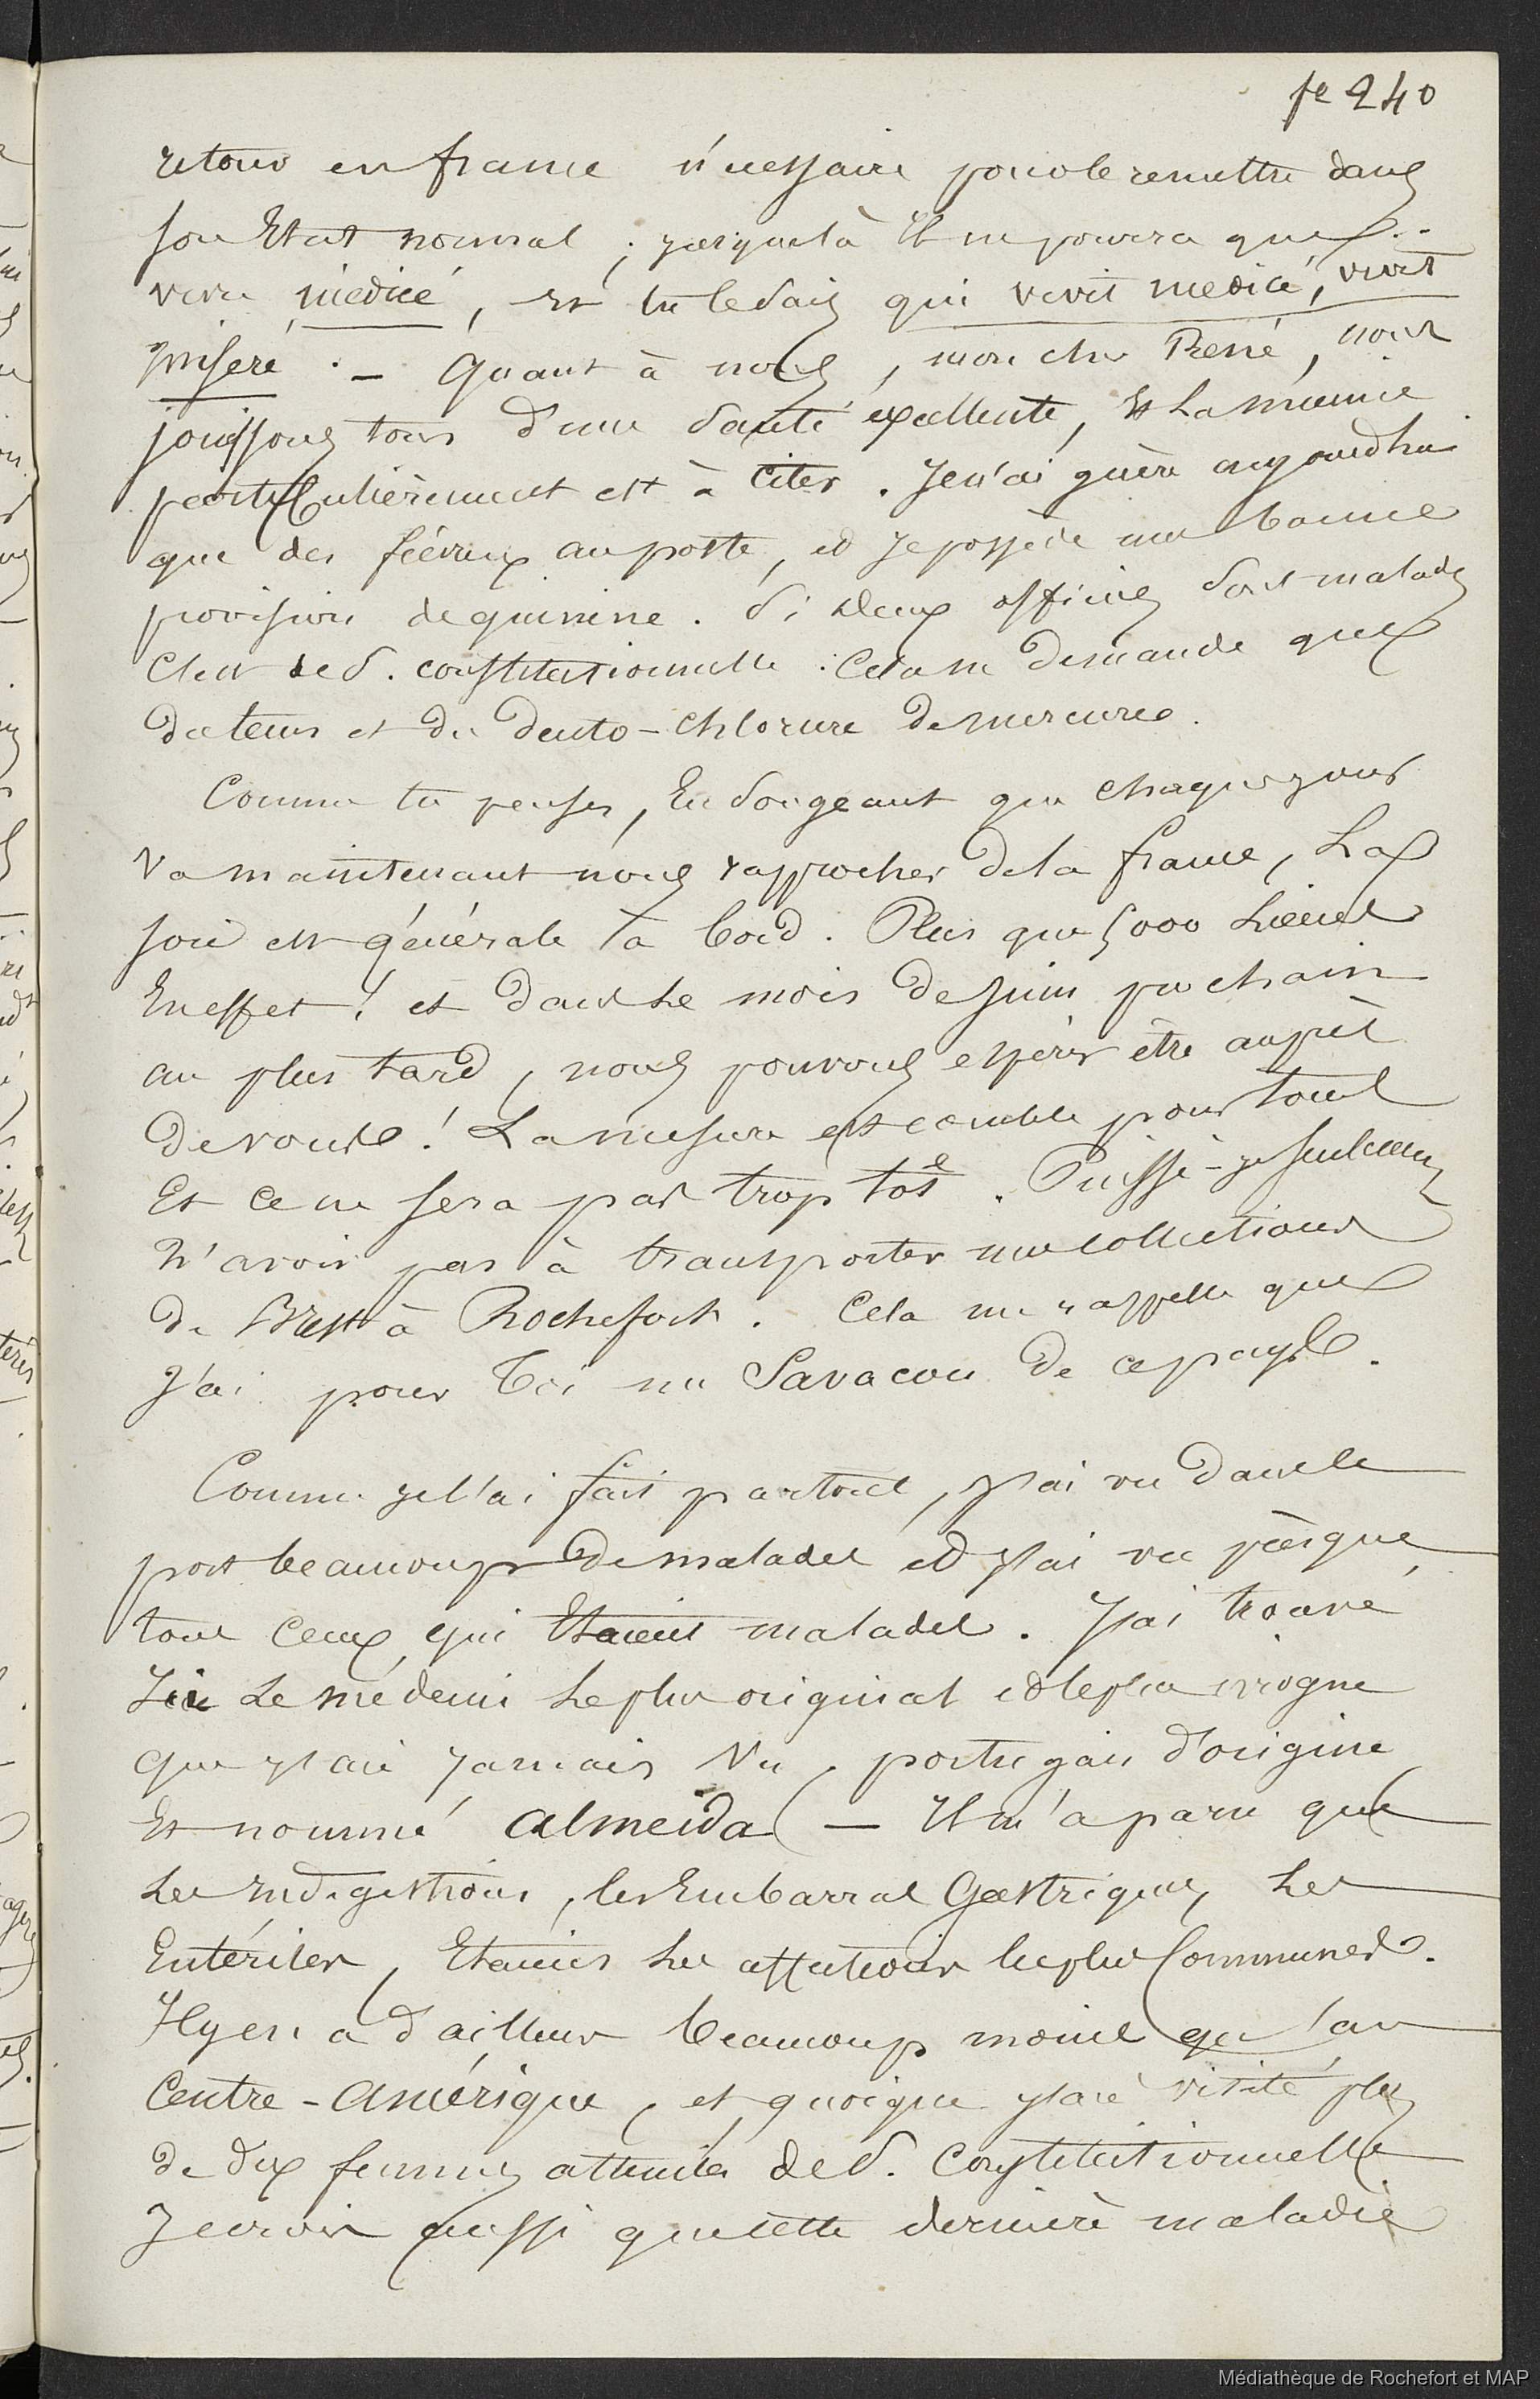 fe 240
retour en france nécessaire pour le remettre dans
son Etat normal ; jusque là il ne pourra que
vivre médicé, et tu le sais qui vivit medicé, vivit
miseré . — Quant à nous, mon cher René, nous
jouissons tous d'une santé excellente, et la mienne
particulièrement est à citer . Je n'ai guère aujourd'hui
que des fiévreux au poste, et je possède une bonne
provision de quinine . Si deux officiers sont malades
c'est de S. constitutionnelle . Cela ne demande que
du tems et du deuto-chlorure de mercure .
Comme tu penses, En songeant que chaque jour
va maintenant nous rapprocher de la france, La
joie est générale à bord . Plus que 5000 Lieues
En effet ! et dans le mois de juin prochain
au plus tard, nous pouvons espérer être auprès
de vous ! La mesure est comble pour tous
Et ce ne sera pas trop tôt . Puissé-je seulement
n'avoir pas à transporter mes collections
de Brest à Rochefort . Cela me rappelle que
J'ai pour toi un Savacou de ce pays .
Comme je l'ai fait partout, j'ai vu dans le
port beaucoup de malades et j'ai vu presque
tous ceux qui Etaient malades . J'ai trouvé
Ici Le médecin Le plus original et le plus ivrogne
que j'aie jamais vu, portugais d'origine
Et nommé Almeida — Il m'a paru que
Les Indigestions, les Embarras Gastriques, Les
Entérites, Etaient Les affections les plus Communes .
Il y en a d'ailleurs beaucoup moins qu'au
Centre-Amérique, et quoique j'aie visité plus
de dix femmes atteintes de S. Constitutionnelle
Je crois aussi que cette dernière maladie
Médiathèque de Rochefort et MAP